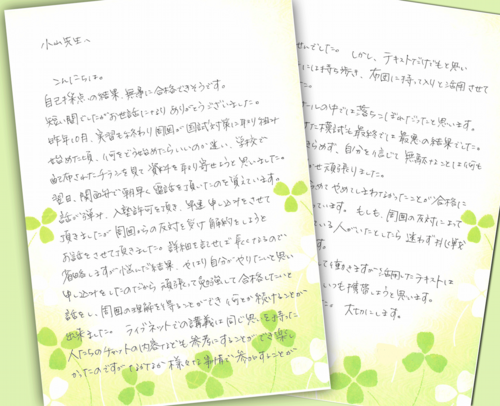 小山先生へ
こんにちは。
自己採点の結果、無事に合格できそうです。
短い間でしたがお世話になり ありがとうございました。
昨年10月、実習も終わり周囲が国試対策に取り組み
始めた頃、何をどう始めたらいいのか迷い、学校で
配布されたチラシを見て資料を取り寄せようと思いました。
翌日、関西弁で朝早く電話を頂いたのを覚えています。
話が弾み、入塾許可を頂き、早速申し込みをさせて
頂きましたが周囲からの反対を受け解約をしようと
お話をさせて頂きました。詳細を話せば長くなるので
省略しますが悩んだ結果、やはり自分がやりたいと思い
申し込みをしたのだから頑張って勉強して合格したいと
話をし、周囲の理解を得ることができ何とか続けることが
出来ました。 ライブネットでの講義は同じ思いを持った
人たちのチャットの内容なども参考にすることができ楽し
かったのですがなかなか様々な事情で参加することが
せんでした。 しかし、テキストだけでもと思い
には持ち歩き、布団に持って入りと活用させて
た。
ールの中では落ちこぼれだったと思います。
けた模試も最終でさえ最悪の結果でした。
らめず、自分を信じて無駄なことは何も
かせ頑張りました。
らめと やめてしまわなかったことが合格に
ています。 もしも、周囲の反対によって
ている人がいたとしたら 迷わず挑戦
す。
して働きますが活用したテキストは
いつも携帯しようと思います。
た。 大切にします。